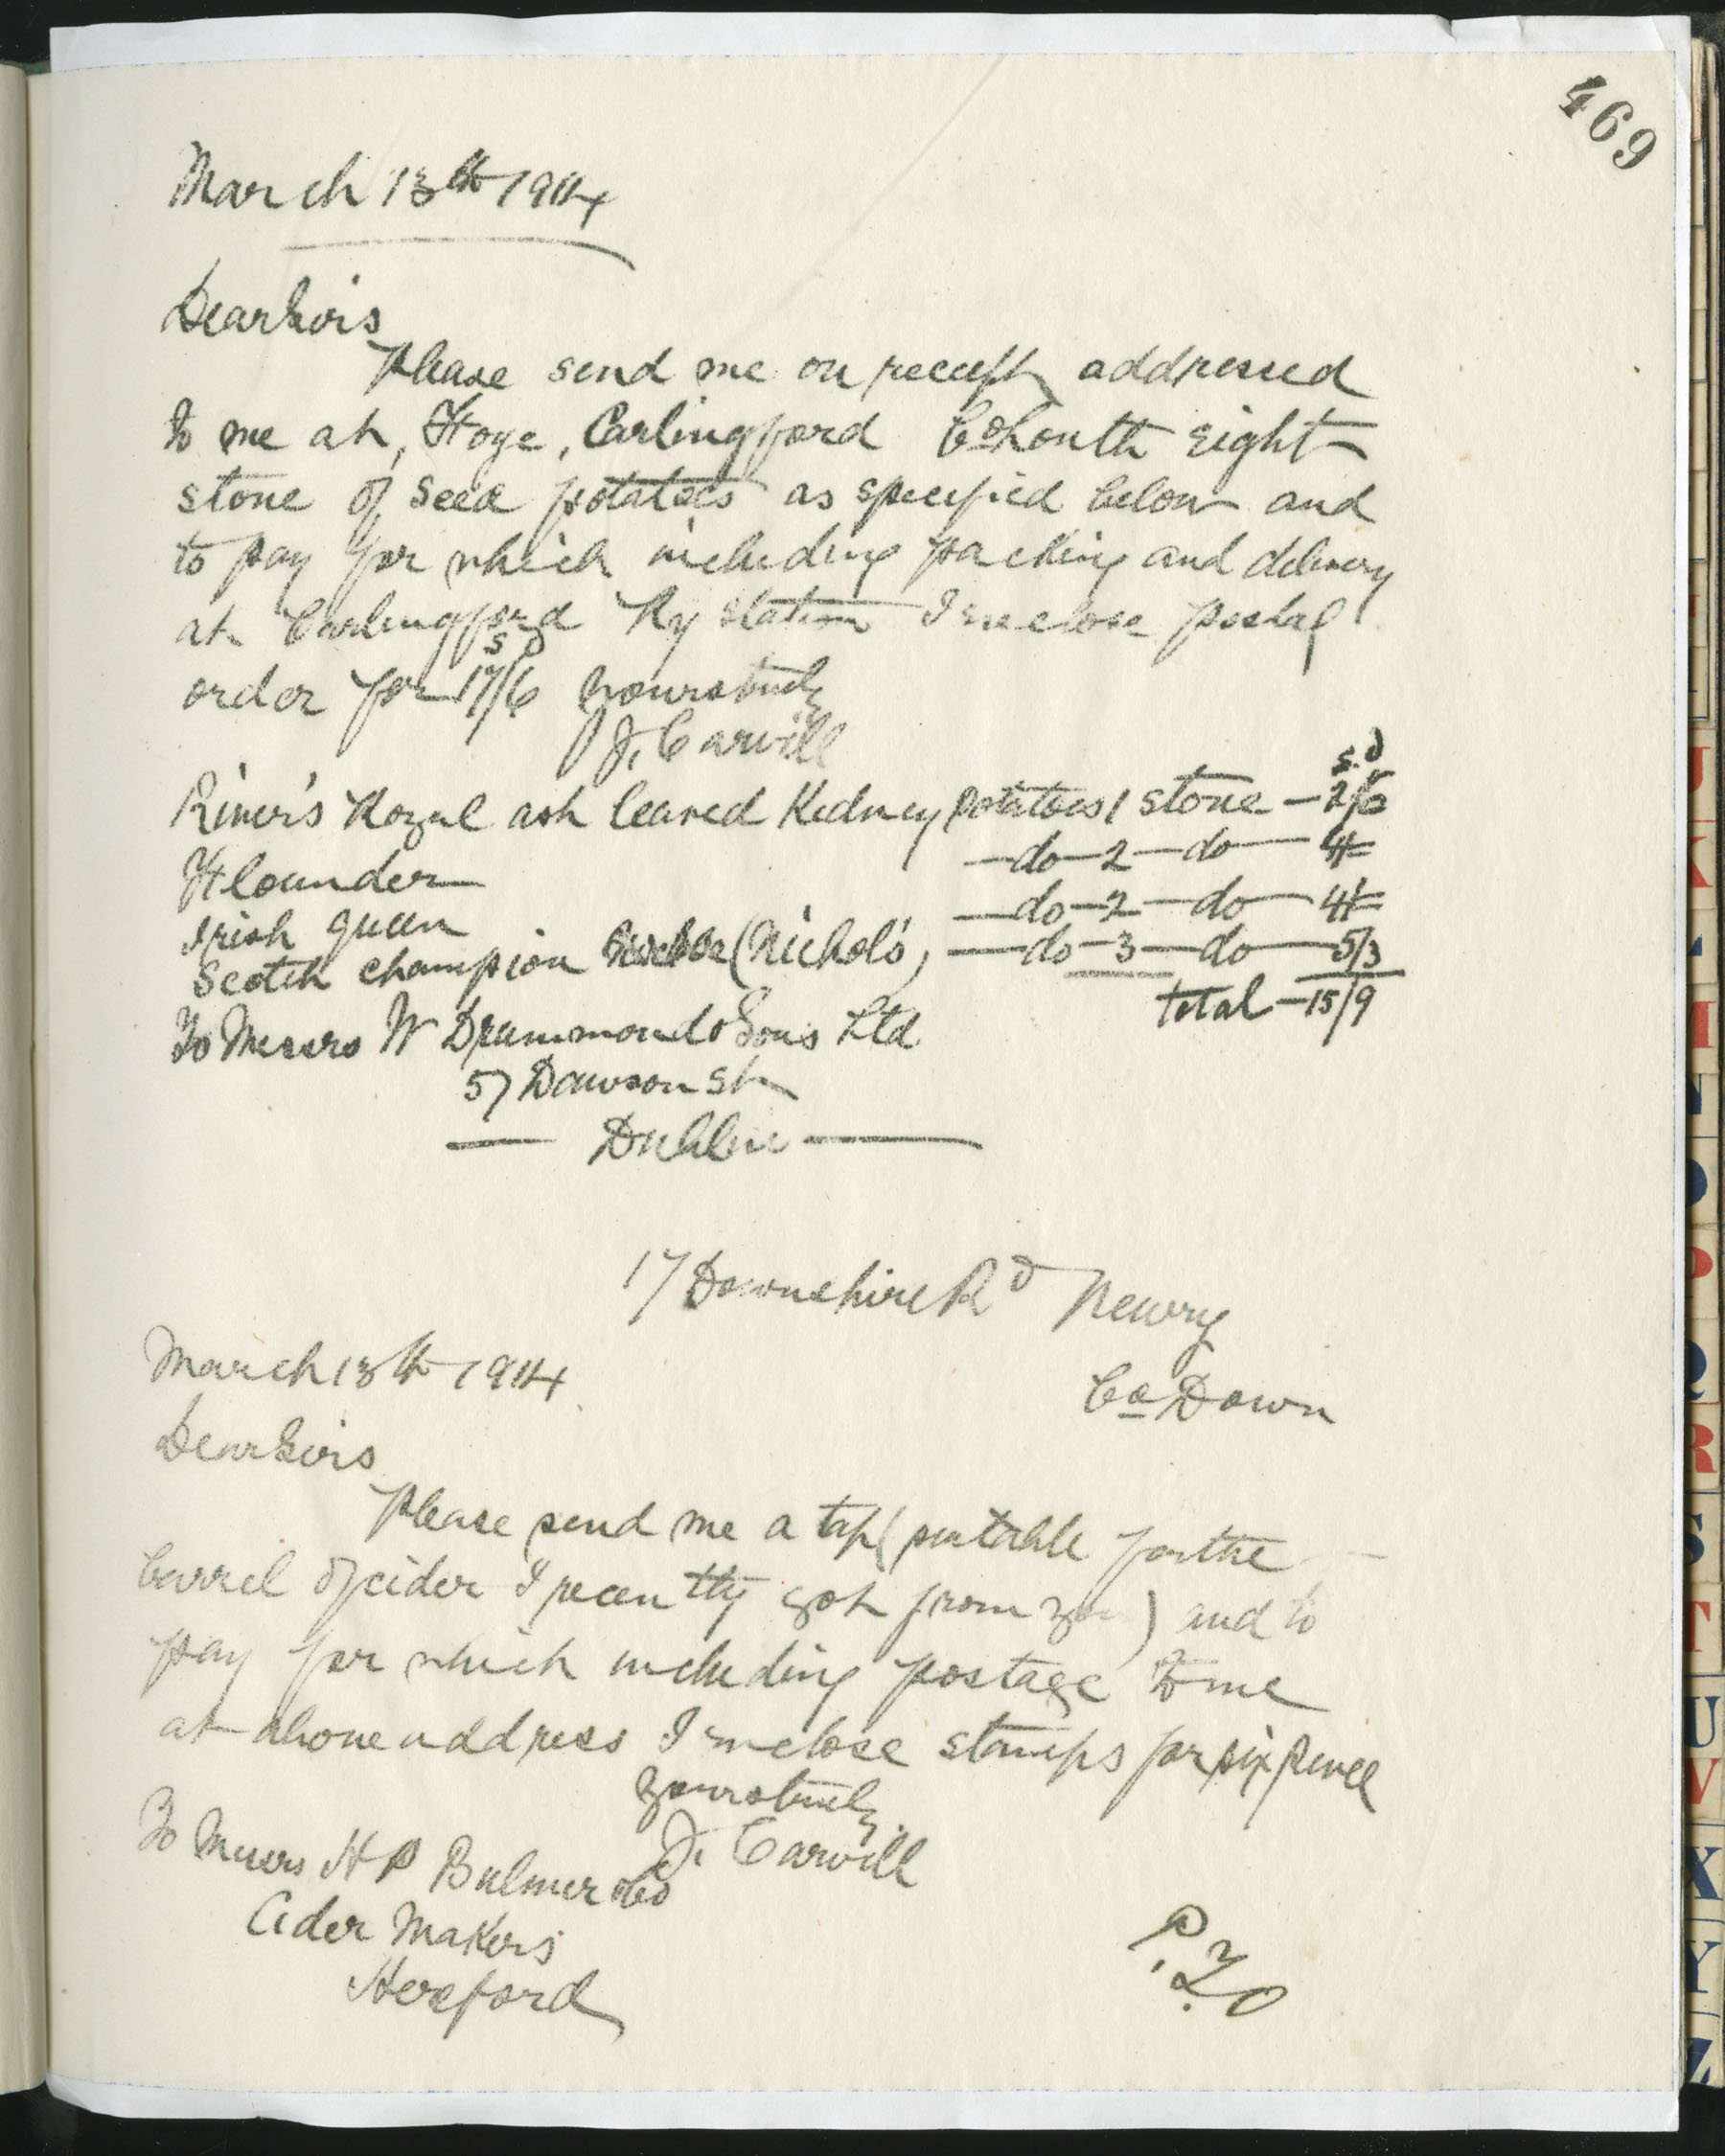 469
March 13th 1914
Dear Sirs
Please send me on receipt, addressed
to me at, Ffoye, Carlingford Co Louth Eight
stone of Seed potatoes as specified below and
to pay for which including packing and delivery
at Carlingford Ry station I enclose postal
s d
order for 17/6 Yours truly
J. Carvill
s. d
River's Royal ash leaved Kidney potatoes 1 stone — 2/6
Flounder — do — 2 — do — 4/=
Irish queen — do — 2 — do — 4/=
Scotch champion (Nichol's) — do — 3 — do — 5/3
total — 15/9
To Messrs W Drummond & Sons Ltd
57 Dawson St
— Dublin —
17 Downshire Rd Newry
March 13th 1914
Co Down
Dear Sirs
Please send me a tap (suitable for the
barrel of cider I recently got from you) and to
pay for which including postage to me
at above address I enclose stamps for six pence
Yours truly
J. Carvill
To Messrs H P Bulmer & Co
Cider Makers
Hereford
P.T.O